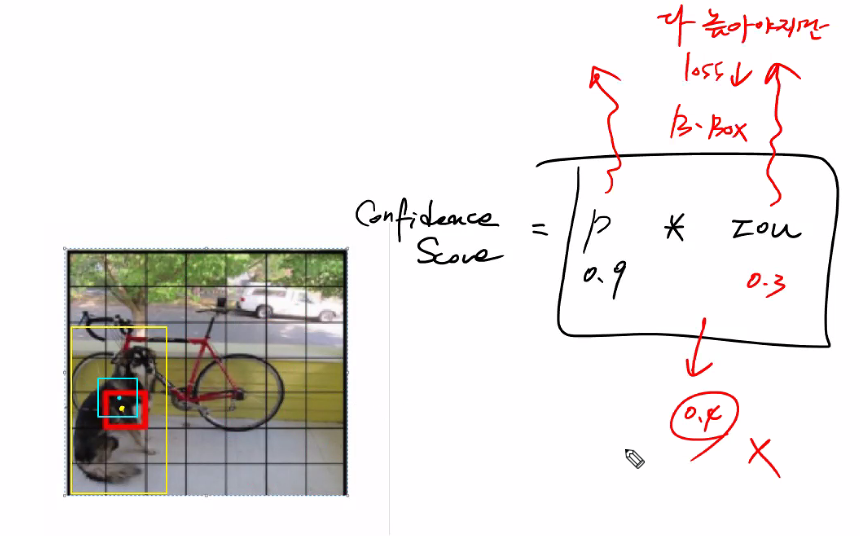 다 높아야지만
loss ↓
B-Box
Confidence Score = P * IOU
0.9 0.3
0.4
X